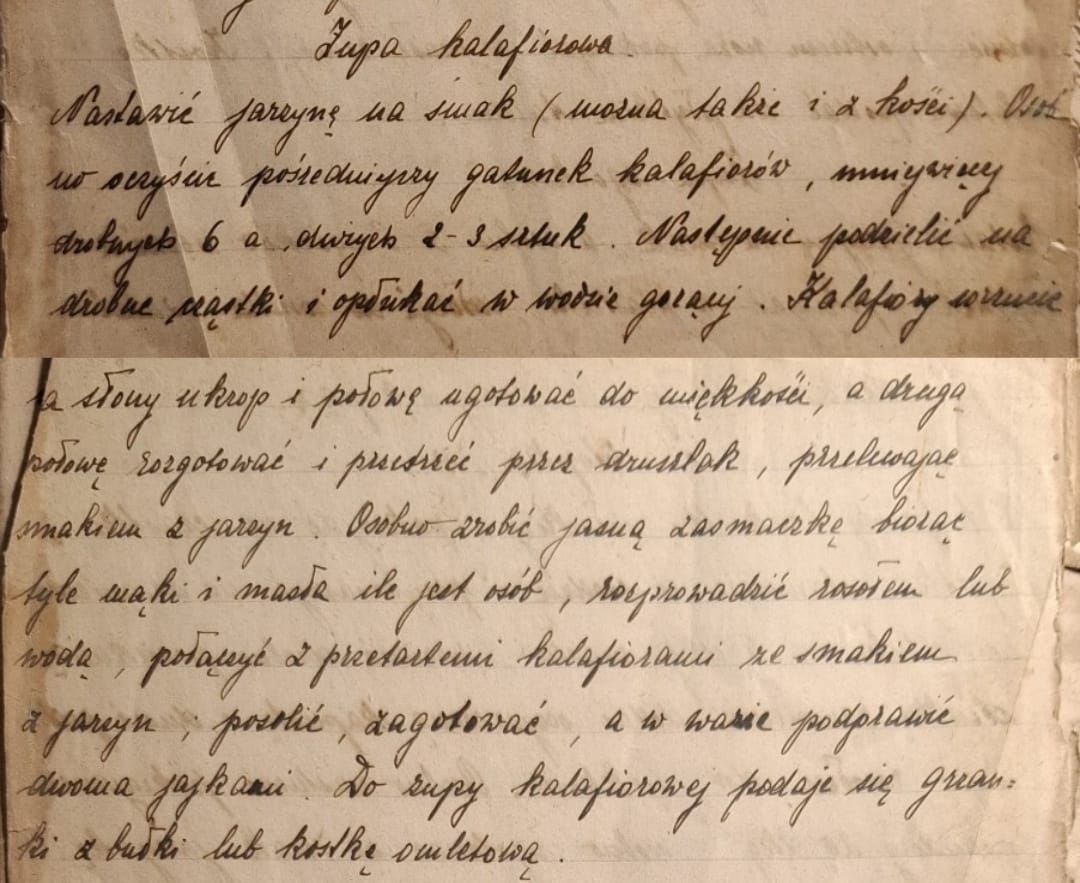 Zupa kalafiorowa.
Nastawić jarzynę na smak (można także i z kości). Osob
no oczyścić pośredniejszy gatunek kalafiorów, mniejwięcej
drobnych 6 a dużych 2-3 sztuk. Następnie podzielić na
drobne cząstki i opłukać w wodzie gorącej. Kalafiory wrzucić
na słony ukrop i połowę ugotować do miękkości, a drugą
połowę rozgotować i przetrzeć przez druszlak, przelewając
smakiem z jarzyn. Osobno zrobić jasną zasmaczkę biorąc
tyle mąki i masła ile jest osób, rozprowadzić rosołem lub
wodą, połączyć z przetartemi kalafiorami ze smakiem
z jarzyn, posolić, zagotować, a w wazie podprawić
dwoma jajkami. Do zupy kalafiorowej podaje się grzan=
ki z bułki lub kostkę omletową.